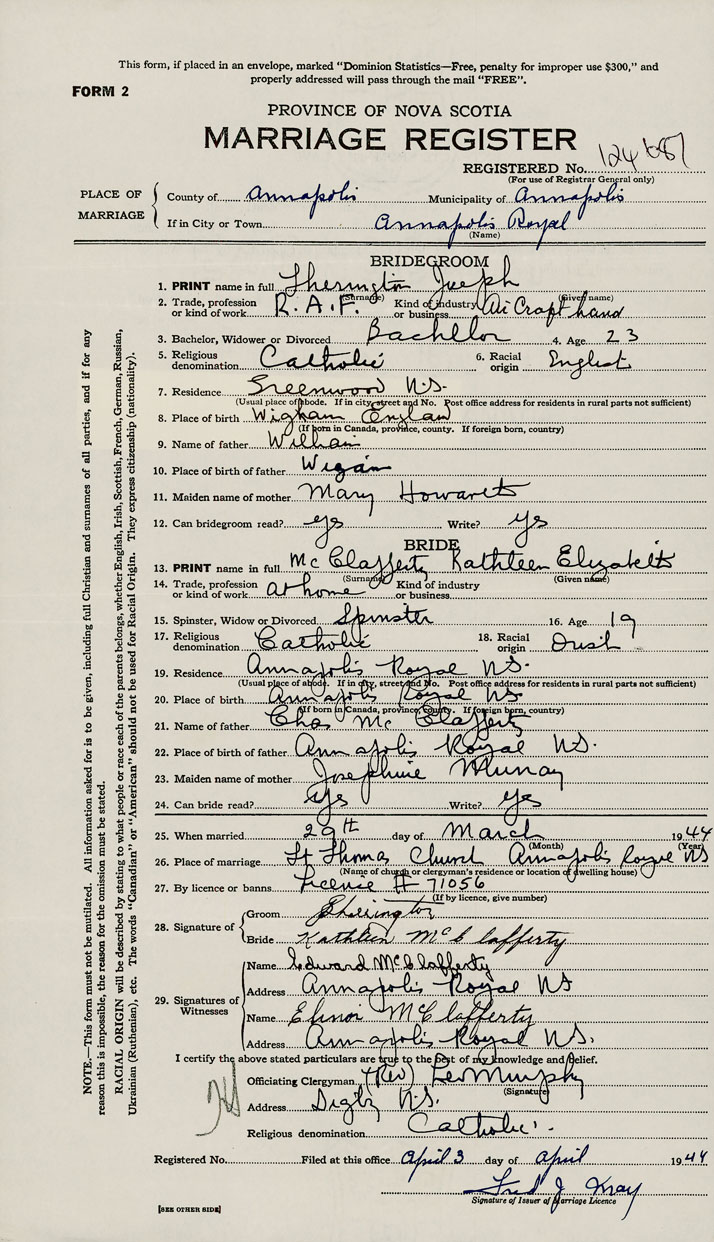 This form, if placed in an envelope, marked "Dominion Statistics—Free, penalty for improper use $300," and
properly addressed will pass through the mail "FREE".
FORM 2
PROVINCE OF NOVA SCOTIA
MARRIAGE REGISTER
REGISTERED No. 124687
(For use of Registrar General only)
PLACE OF MARRIAGE
County of Annapolis Municipality of Annapolis
If in City or Town Annapolis Royal
(Name)
BRIDEGROOM
1. PRINT name in full Sherington Joseph
(Surname) (Given name)
2. Trade, profession or kind of work R.A.F. Kind of industry or business Air Craft hand
3. Bachelor, Widower or Divorced Bachelor 4. Age 23
5. Religious denomination Catholic 6. Racial origin English
7. Residence Greenwood N.S.
(Usual place of abode. If in city, street and No. Post office address for residents in rural parts not sufficient)
8. Place of birth Wigham Englan
(If born in Canada, province, county. If foreign born, country)
9. Name of father William
10. Place of birth of father Wigan
11. Maiden name of mother Mary
12. Can bridegroom read? yes Write? yes
BRIDE
13. PRINT name in full McClafferty Kathleen Elizabeth
(Surname) (Given name)
14. Trade, profession or kind of work at home Kind of industry or business
15. Spinster, Widow or Divorced Spinster 16. Age 19
17. Religious denomination Catholic 18. Racial origin Irish
19. Residence Annapolis Royal N.S.
(Usual place of abode. If in city, street and No. Post office address for residents in rural parts not sufficient)
20. Place of birth Annapolis Royal NS
(If born in Canada, province, county. If foreign born, country)
21. Name of father Chas McClafferty
22. Place of birth of father Annapolis Royal N.S.
23. Maiden name of mother Josephine Murray
24. Can bride read? Yes Write? Yes
25. When married 29th day of March 1944
(Month) (Year)
26. Place of marriage St Thomas Church Annapolis Royal NS
(Name of church or clergyman's residence or location of dwelling house)
27. By licence or banns License # 71056
(If by licence, give number)
28. Signature of
Groom JSherington
Bride Kathleen McClafferty
29. Signatures of Witnesses
Name Edward McClafferty
Address Annapolis Royal NS
Name Elinor McClafferty
Address Annapolis Royal N.S.
I certify the above stated particulars are true to the best of my knowledge and belief.
Officiating Clergyman (Rev) Leo Murphy
(Signature)
Address Digby N.S.
Religious denomination Catholic.
Registered No. Filed at this office April 3 day of April 1944
Fred J Kray
Signature of Issuer of Marriage Licence
[SEE OTHER SIDE]
NOTE.—This form must not be mutilated. All information asked for is to be given, including full Christian and surnames of all parties, and if for any
reason this is impossible, the reason for the omission must be stated.
RACIAL ORIGIN will be described by stating to what people or race each of the parents belongs, whether English, Irish, Scottish, French, German, Russian,
Ukrainian (Ruthenian), etc. The words "Canadian" or "American" should not be used for Racial Origin. They express citizenship (nationality).